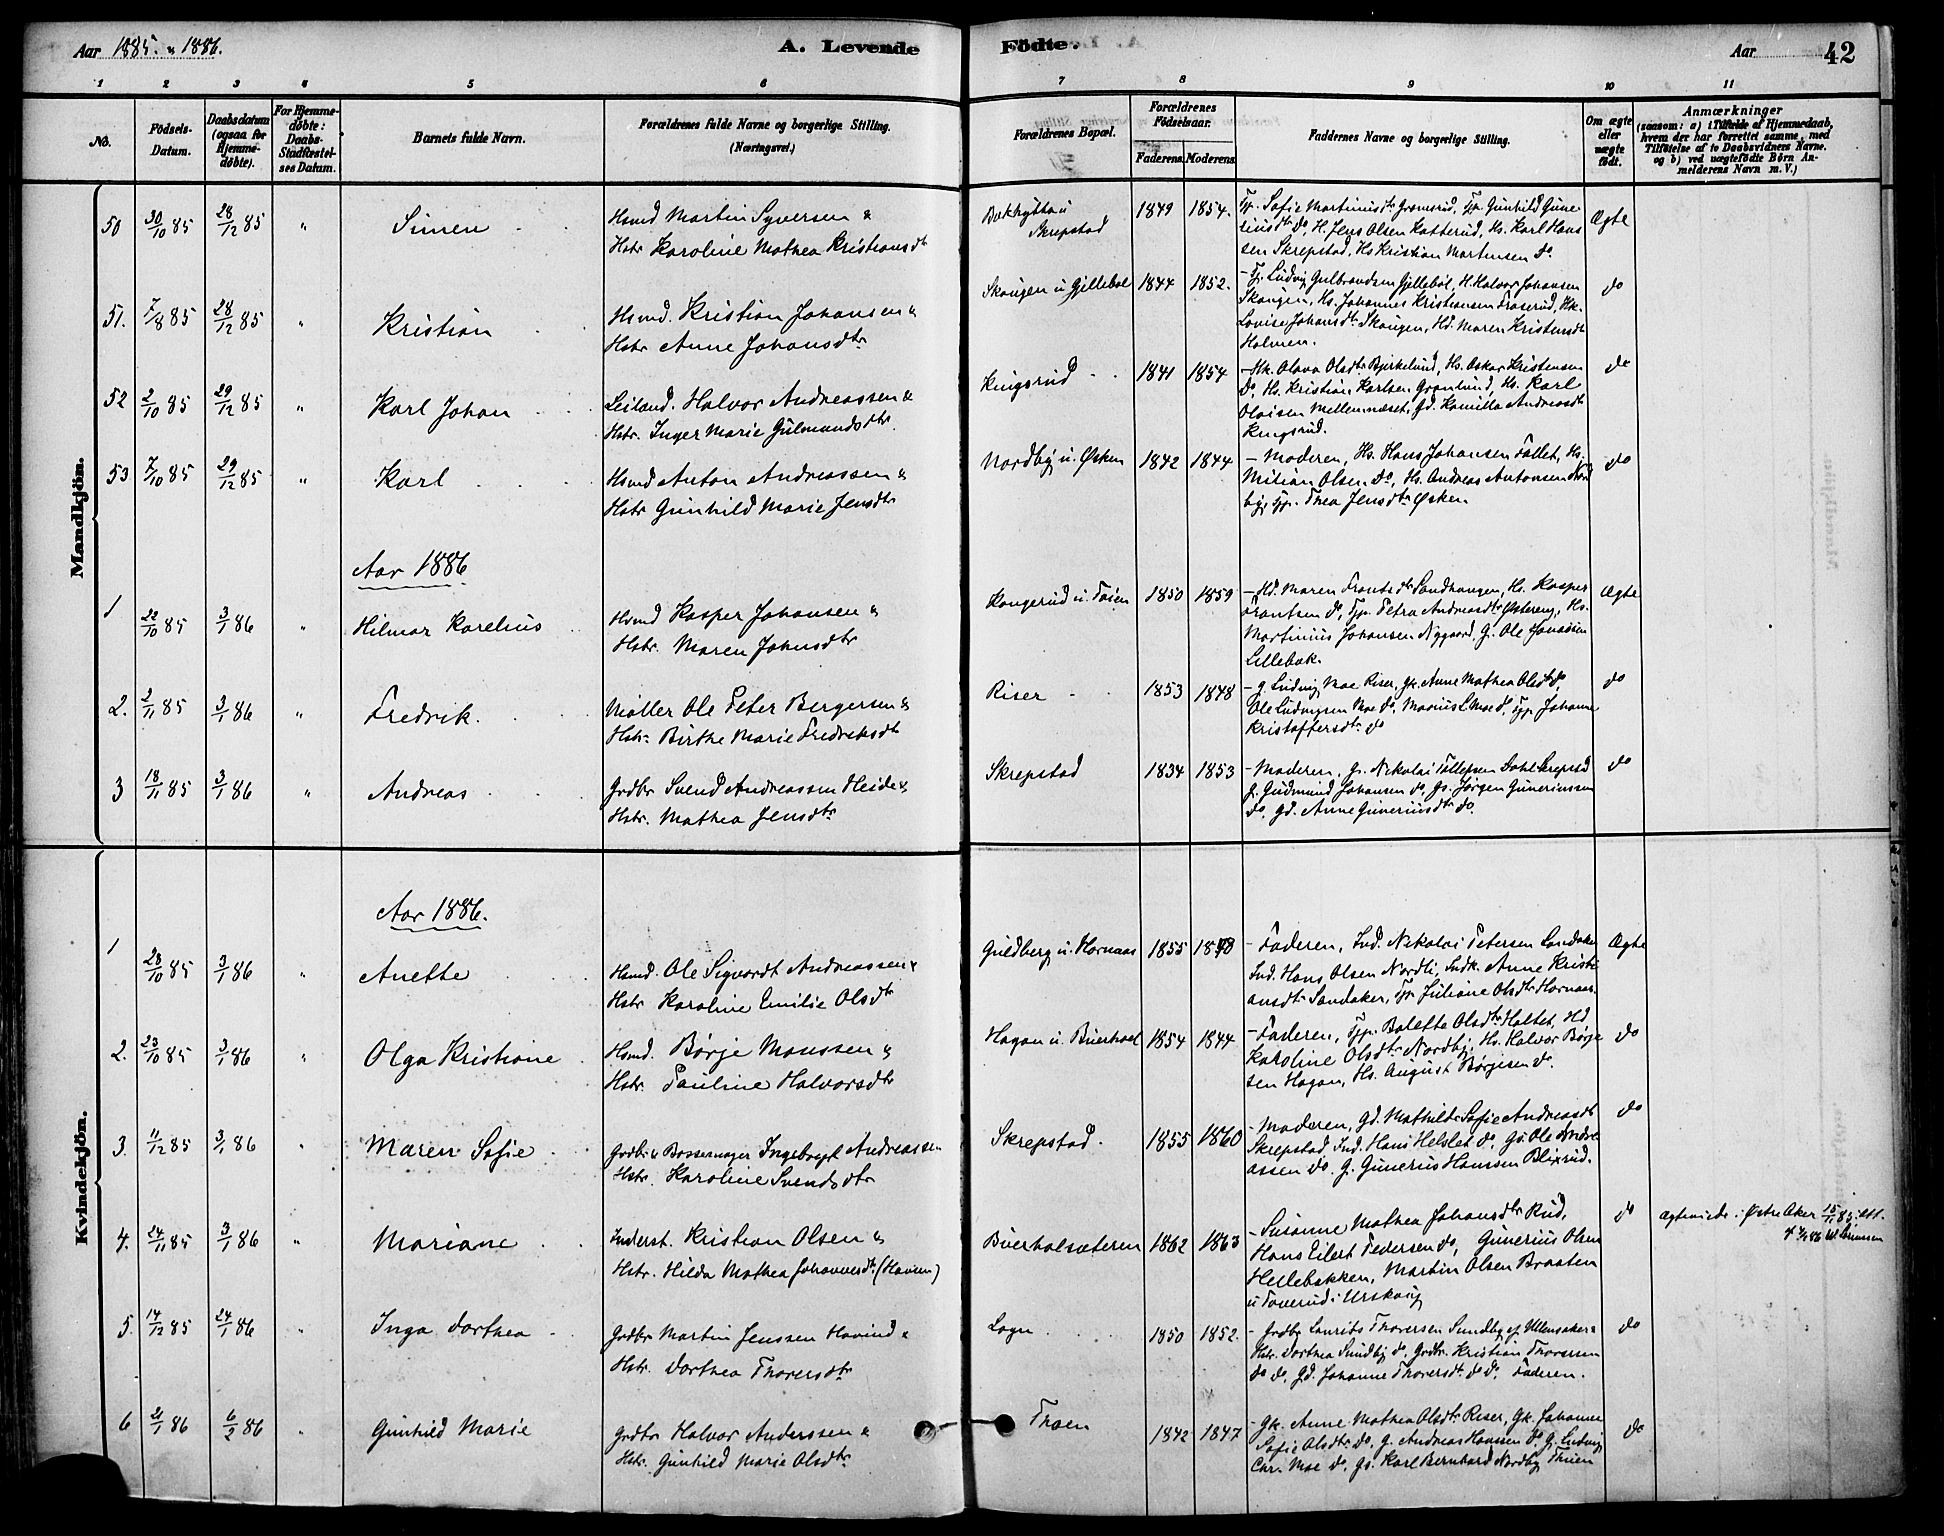 Aar 1885. & 1886.
A. Levende Fødte.
Aar
42
1 2 3 4 5 6 7 8 9 10 11
No.
Födsels-Datum.
Daabsdatum (ogsaa for Hjemmedöbte).
For Hjemmedöbte: Daabs-Stadfæstelses Datum.
Barnets fulde Navn.
Forældrenes fulde Navne og borgerlige Stilling. (Næringsvei.)
Forældrenes Bopæl.
Forældrenes Födselsaar.
Faderens. Moderens.
Faddernes Navne og borgerlige Stilling.
Om ægte eller uægte födt.
Anmærkninger
(saasom: a) i Tilfælde af Hjemmedaab,
hvem der har forrettet samme, med
Tilföielse af to Daabsvidners Navne.
og b) ved uægtefödte Börn An-
melderens Navn m. V.)
Mandkjön.
50 30/10 85 28/12 85 " Simen
Hsmd Martin Syversen &
Hstr Karoline Mathea Kristiansdt
Bakhytta u Skrepstad 1849 1854.
Tp. Sofie Martinusdtr Gromsrud, Tp. Gunhild Gune
riusdtr do, H. Jens Olsen Katterud, Hs. Karl Hans
sen Skrepstad, Hs Kristian Martensen do.
Ægte
51. 7/8 85 28/12 85 " Kristian
Hsmd. Kristian Johansen &
Hstr Anne Johansdtr
Skougen u Gjillebøl 1844 1852.
- Tj. Ludvig Gulbrandsen Gjillebøl, H. Halvor Johansen
Skougen, Hs. Johannes Kristiansen Froserud, Hk.
Lovise Johansdtr Skougen, Hd. Maren Kristensdt
Holmen.
do
52 2/10 85 29/12 85 " Karl Johan
Leiland. Halvor Andreassen &
Hstr. Inger Marie Gulmundsdtr.
Kingsrud 1841 1854
- Hk. Olava Olsdtr Bjerkelund, Hs. Oskar Kristensen
do. Hs. Kristian Karlsen Grønlund, Hs. Karl
Olaisen Mellemnæset, Gd. Kamilla Andreasdt
Kingsrud.
do
53 7/10 85 29/12 85 " Karl
Hsmd Anton Andreassen &
Hstr Gunhild Marie Jensdtr
Nordby u. Øsken 1842 1844
- Moderen, Hs. Hans Johansen Fallet, Hs.
Milian Olsen do, Hs. Andreas Antonsen Nord
by, Tjp. Thea Jensdtr Øsken
do
Aar 1886
1 22/10 85 3/1 86 " Hilmar Karelius
Hsmd Kasper Johansen &
Hstr. Maren Johnsdtr
Kongerud u. Toien 1850 1859
- Hd. Maren Frantsdtr Sandhaugen, Hs. Kasper
Frantsen do, Tjp. Petra Andreasdtr Østereng, Hs.
Martinius Johansen Nygaard, G. Ole Jonassen
Lillebak.
Ægte
2. 2/11 85 3/1 86 " Fredrik.
Møller Ole Peter Bergersen &
Hstr. Birthe Marie Fredriksdt
Riser 1853 1848
- G. Ludvig Moe Riser, Gk. Anne Mathea Olsdtr do,
Ole Ludvigsen Moe do, Marius L. Moe do, Tjp. Johanne
Kristoffersdtr do
do
3 18/11 85 3/1 86 " Andreas
Grdbr Svend Andreassen Heide &
Hstr. Mathea Jensdtr
Skrepstad 1834 1853
- Moderen, Gs. Nikolai Tollefsen Dahl Skrepstad
G. Gudmund Johansen do, Gs. Jørgen Gunerinssen
do, Gd. Anne Guneriusdtr do.
do
Kvindekjön.
Aar 1886.
1 23/10 85 3/1 86 " Anette
Hsmd. Ole Sigvardt Andreassen &
Hstr Karoline Emilie Olsdt
Guldberg u. Hornaas 1855 1848
- Faderen, Ind. Nikolai Petersen Sandaker
Ind. Hans Olsen Nordli, Indk. Anne Kristi
ansdtr Sandaker, Tp. Juliane Olsdtr Hornaas.
Ægte
2. 23/10 85 3/1 86 " Olga Kristiane
Hsmd. Børje Monssen &
Hstr. Pauline Halvorsdtr
Hagan u. Buerhol 1854 1844
- Faderen, Tjp. Bolette Olsdtr Holtet, Hd
Karoline Olsdtr Nordby, Hs. Halvor Børje
sen Hagan, Hs. August Børjesen do.
do
3. 11/12 85 3/1 86 " Maren Sofie
Grdbr & Bossemager Ingebregt Andreassen
Hstr. Karoline Svendsdtr
Skrepstad. 1855 1860
- Moderen, Gd. Mathilde Sofie Andreasdt
Skrepstad, Ind. Hans Helslet do, Gs. Ole Andre
assen do. G. Gunerius Hanssen Blixrud.
do
4. 24/11 85 3/1 86 " Mariane
Inderst. Kristian Olsen &
Hstr. Hilda Mathea Johannesdtr (Haven)
Buerholsæteren 1862 1863
- Susanne Mathea Johansdtr Rud,
Hans Eilert Pedersen do, Gunerius Olsen
Hellebakken, Martin Olsen Braaten
u Toverud i Urskoug
do
Ægteviede i Østre Aker 15/11 85
5. 14/12 85 24/1 86 " Inga Dorthea
Grdbr Martin Jenssen Havind &
Hstr. Dorthea Thoresdtr
Logn 1850 1852.
- Grdbr Laurits Thoresen Sundby af Ullensaker &
Hstr. Dorthea Sundby do, Grdbr. Kristian Thoresen
do do, Gd. Johanne Thoresdtr do do. Faderen.
do
6 2/1 86 6/2 86 " Gunhild Marie
Grdbr Halvor Anderssen &
Hstr. Gunhild Marie Olsdtr.
Thoen 1842 1847
- Gk. Anne Mathea Olsdtr Riser, Gk. Johanne
Sofie Olsdtr do, G. Andreas Hanssen do, G. Ludvig
Chr. Moe do, Gs. Karl Bernhard Nordby Thoen
do